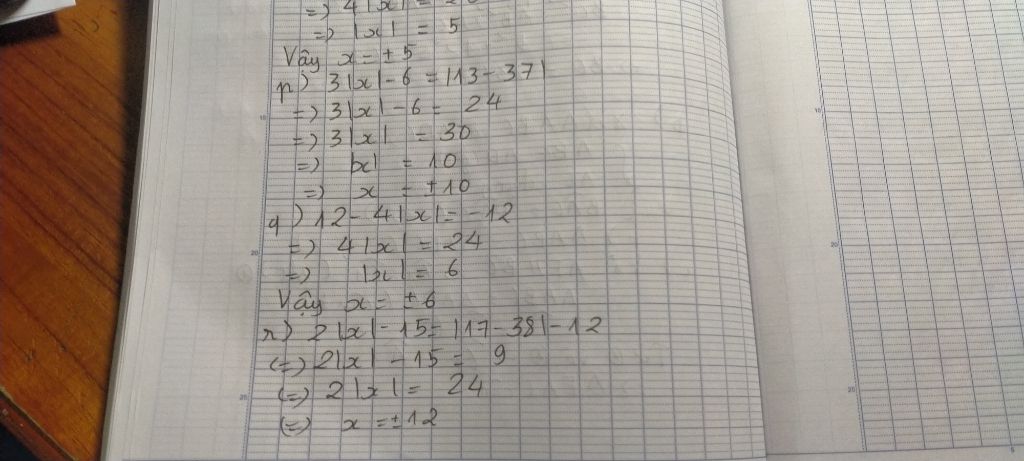 =) 4|x| = 20
=) |x| = 5
Vậy x = ± 5
p) 3|x| - 6 = |13 - 37|
=) 3|x| - 6 = 24
=) 3|x| = 30
=) |x| = 10
=) x = ±10
q) 12 - 4|x| = -12
=) 4|x| = 24
=) |x| = 6
Vậy x = ± 6
r) 2|x| - 15 = |17 - 38| - 12
(=) 2|x| - 15 = 9
(=) 2|x| = 24
(=) x = ±12